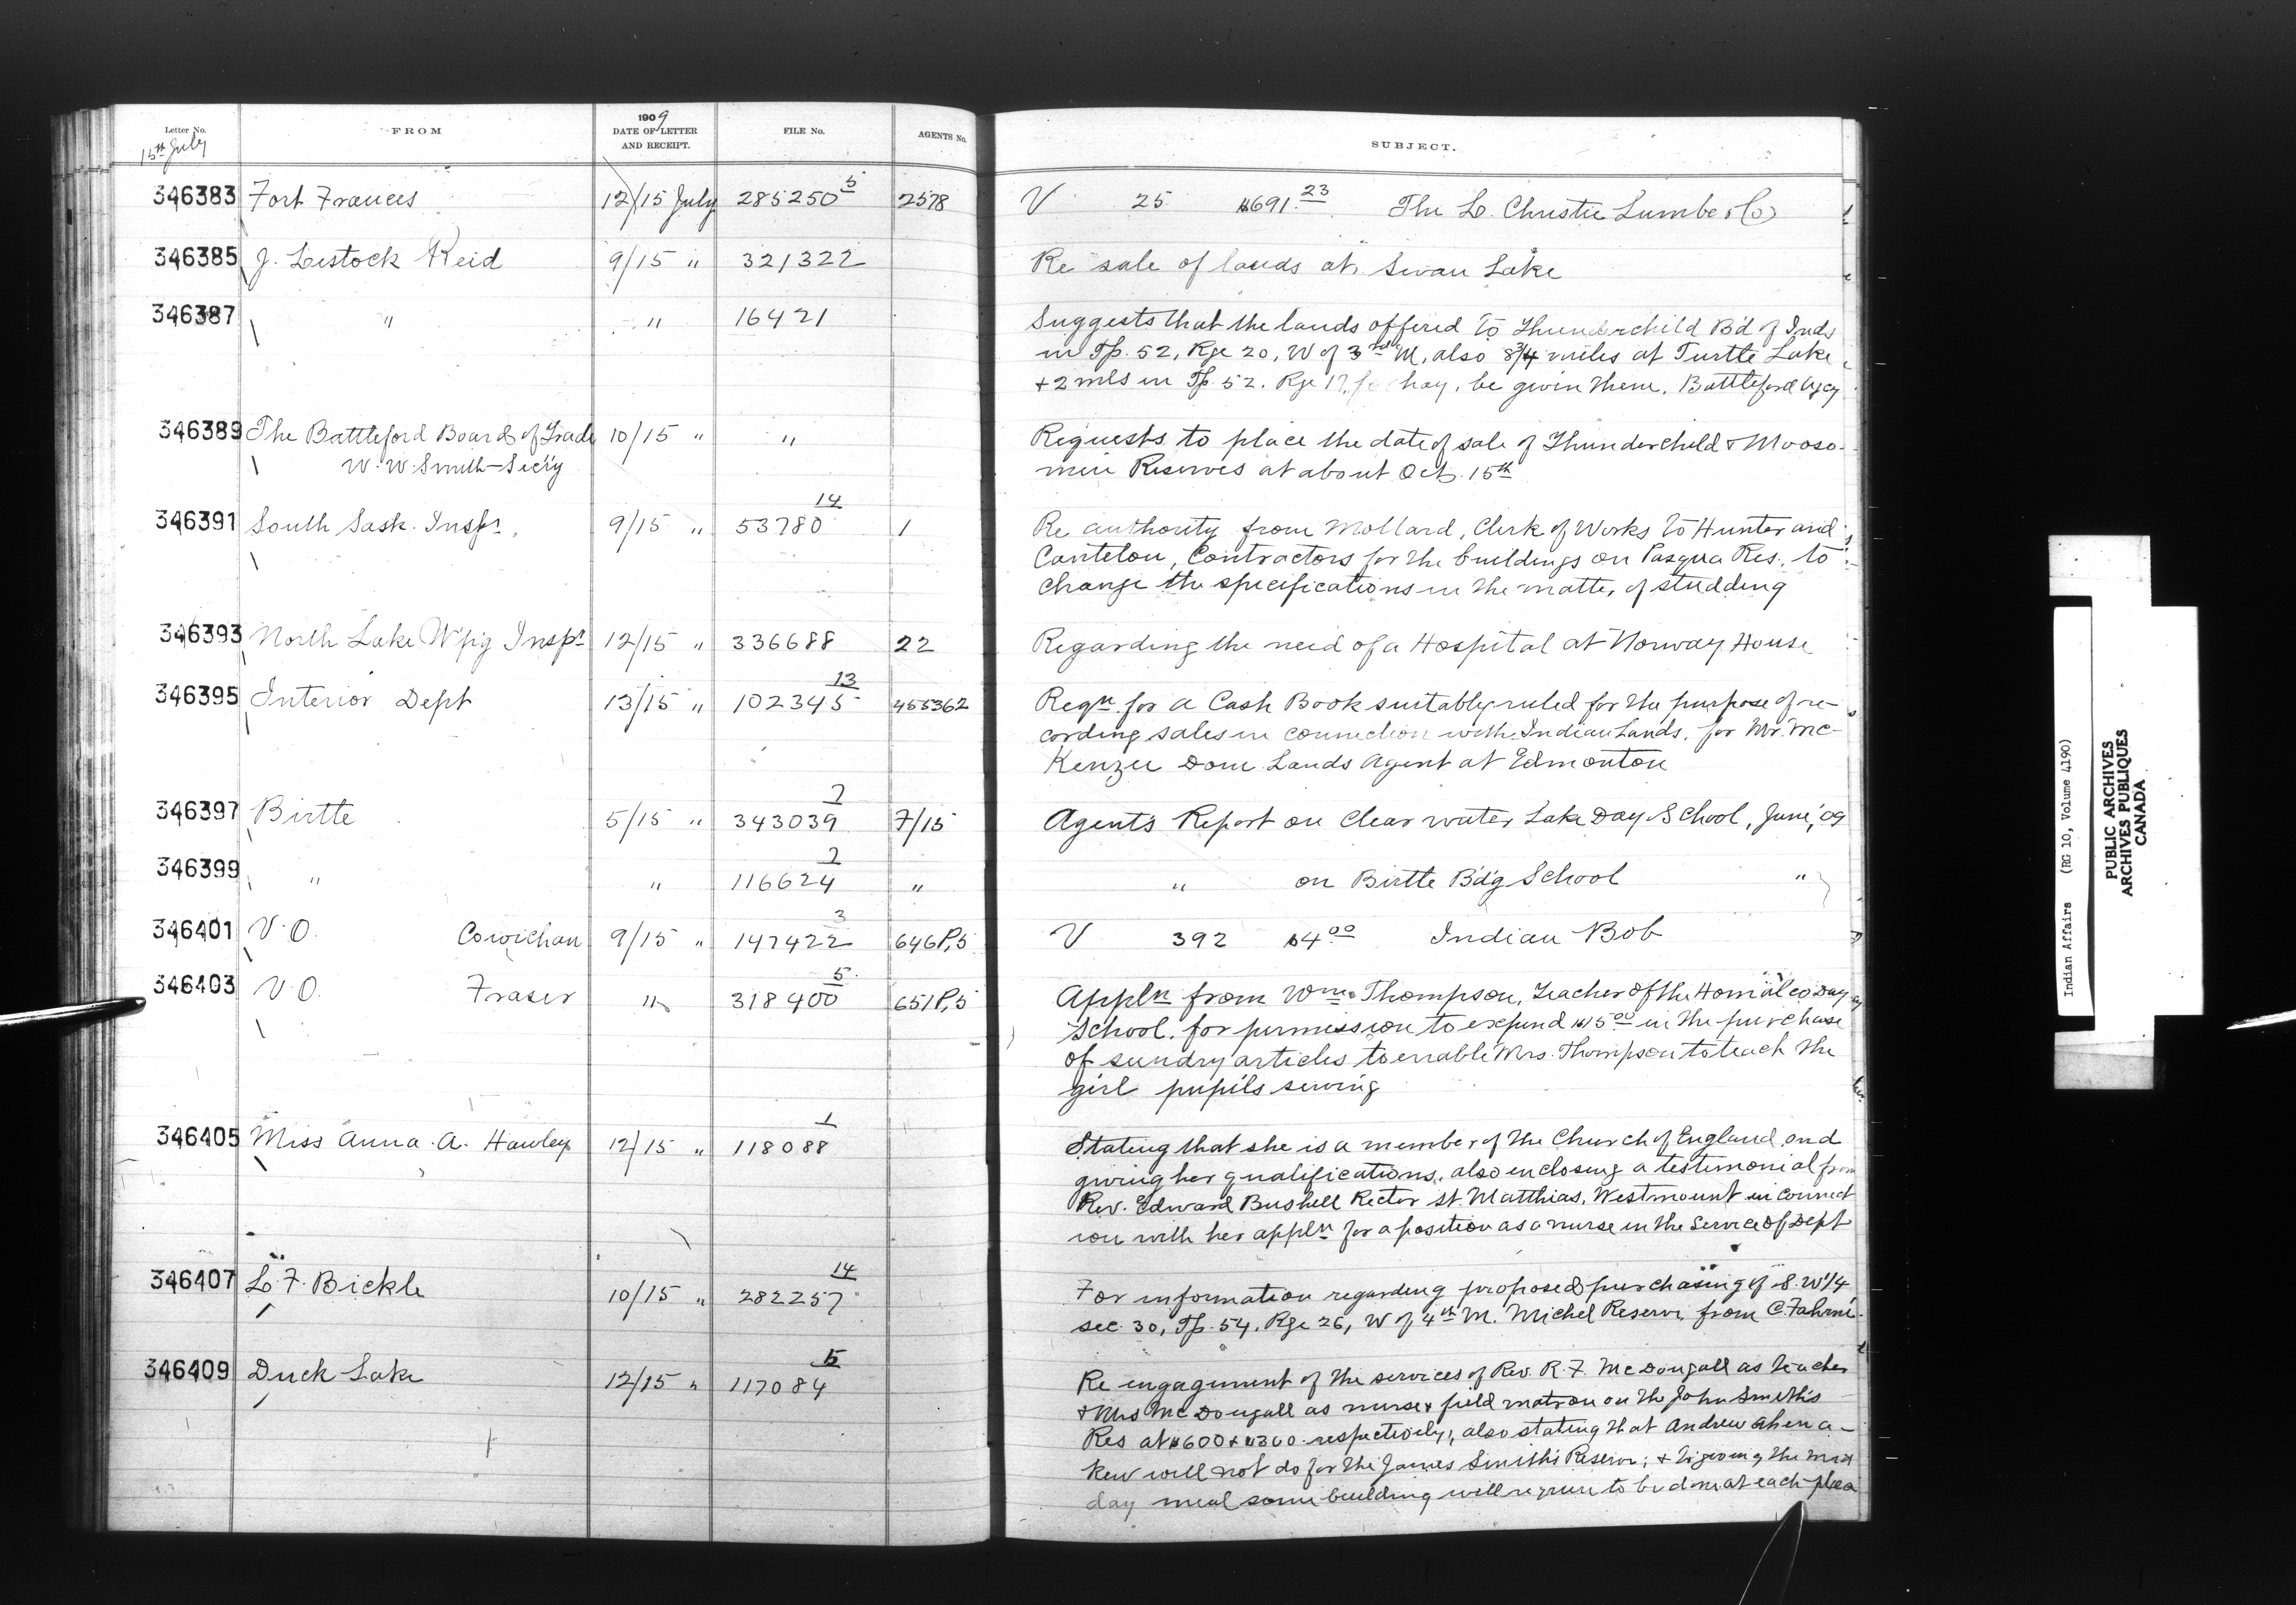 Letter No.
15th July
FROM
1909
DATE OF LETTER
AND RECEIPT.
FILE No.
AGENTS No.
SUBJECT.
346383 Fort Frances 12/15 July 285250 5 2578 V 25 $691.23 The L. Christie Lumber Co
346385 J. Lestock Reid 9/15 " 321322 Re sale of lands at Swan Lake
346387 " " 16421 Suggests that the lands offered to Thunderchild B'd of Inds
in Tp. 52, Rge 20, W of 3rd M, also 8 3/4 miles at Turtle Lake
+ 2 mls in Tp. 52. Rge 17, for hay, be given them. Battleford Agcy
346389 The Battleford Board of Trade 10/15 " " Requests to place the date of sale of Thunderchild & Mooso-
W. W. Smith - Sec'y min Reserves at about Oct. 15th
346391 South Sask. Inspr. 9/15 " 53780 14 1 Re authority from Mollard, Clerk of Works to Hunter and
Cantelon, Contractors for the buildings on Pasqua Res., to
change the specifications in the matter of studding
346393 North Lake W'pig Inspr 12/15 " 336688 22 Regarding the need of a Hospital at Norway House
346395 Interior Dept 13/15 " 102345 13 455362 Reqn. for a Cash Book suitably ruled for the purpose of re-
cording sales in connection with Indian Lands, for Mr. Mc-
Kenzie Dom. Lands Agent at Edmonton
346397 Birtle 5/15 " 343039 2 7/15 Agent's Report on Clear water Lake Day School, June, '09
346399 " " 116624 2 " " on Birtle Bd'g School "
346401 V.O. Cowichan 9/15 " 147422 3 646P,5 V 392 $4.00 Indian Bob
346403 V.O. Fraser " 318400 5 651P,5 Appln from Wm. Thompson, Teacher of the Homalco Day
School. for permission to expend $15.00 in the purchase
of sundry articles to enable Mrs. Thompson to teach the
girl pupils sewing
346405 Miss Anna. A. Hawley 12/15 " 118088 1 Stating that she is a member of the Church of England and
giving her qualifications, also enclosing a testimonial from
Rev. Edward Bushell Rector St. Matthias, Westmount in connect
ion with her appln for a position as a nurse in the Service of Dept
346407 L. F. Bickle 10/15 " 282257 14 For information regarding proposed purchasing of S.W 1/4
sec. 30, Tp. 54, Rge 26, W of 4th M. Michel Reserve, from C. Fahrni.
346409 Duck Lake 12/15 " 117084 5 Re engagement of the services of Rev. R. F. McDougall as teacher
& Mrs McDougall as nurse & field matron on the John Smith's
Res at $600 & $300 respectively, also stating that Andrew Ahena-
kew will not do for the James Smith's Reserve; & to giving the mid
day meal some building will require to be done at each place
Indian Affairs (RG 10, Volume 4190)
PUBLIC ARCHIVES
ARCHIVES PUBLIQUES
CANADA